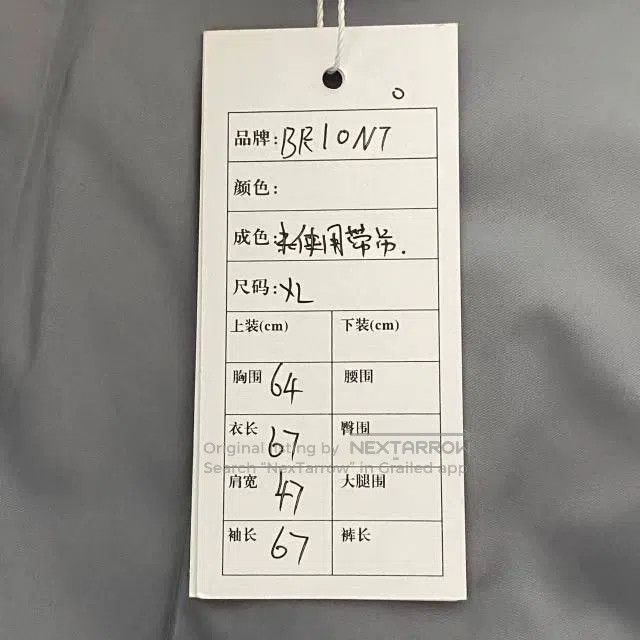 品牌: BRIONT
颜色:
成色: 未使用带吊.
尺码: XL
上装(cm) 下装(cm)
胸围 64 腰围
衣长 67 臀围
Original listing by NEXTARROW
Search "NexTarrow" in Grailed app
肩宽 47 大腿围
袖长 67 裤长